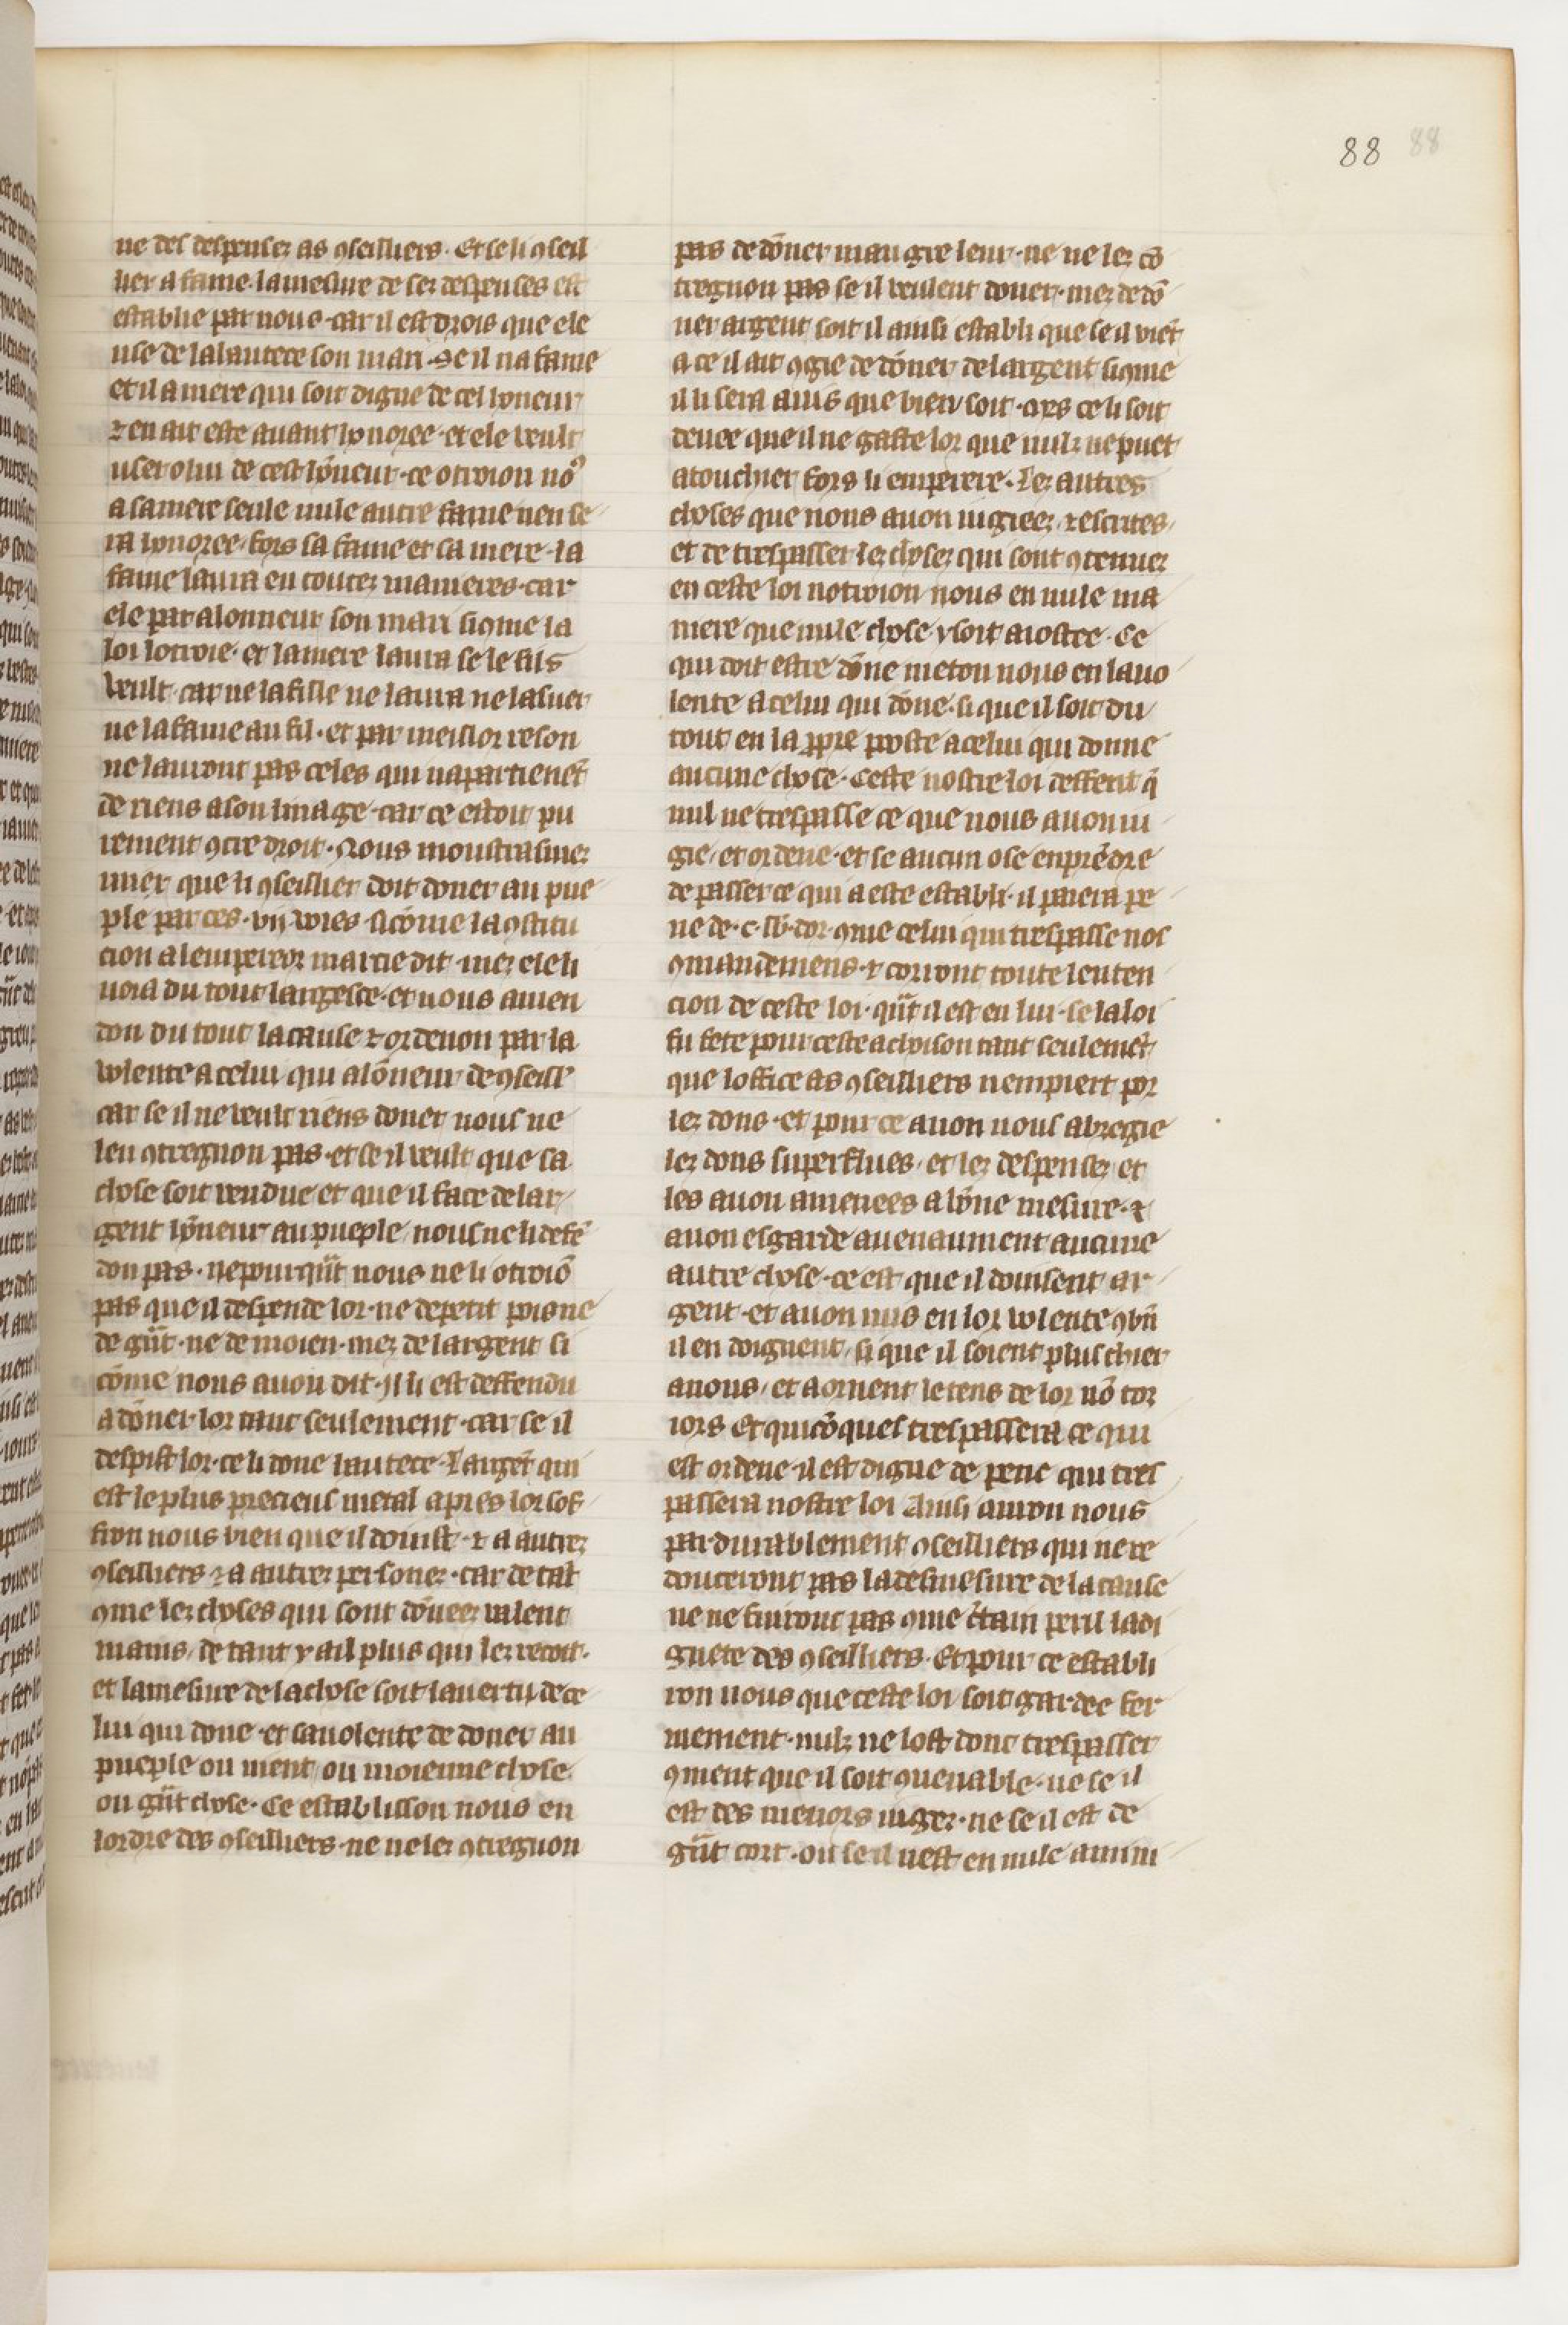 88 88
ne des despensez as ꝯseilliers · Et se li ꝯseil
lier a fame · la mesure de sez despenses est
establie par nous · car il est drois que ele
use de la lautece son mari · Se il na fame
et il a mere qui soit digne de cel honeur
⁊ en ait este avant honoree · et ele veult
user o lui de cest hõneur · ce otroion noꝰ
a sa mere seule nule autre fame nen se
ra honoree · fors sa fame et sa mere · la
fame laura en toutez manieres · car
ele par a lonneur son mari si ꝯme la
loi lotroie · et la mere laura se le fils
veult · car ne la fille ne laura ne la suer
ne la fame au fil · et par meillor reson
ne lauront pas celes qui napartienẽt
de riens a son linage · car ce estoit pu
rement ꝯtre droit · Nous moustrasmez
nuer que li ꝯseillier doit doner au pue
ple par ces · vij · voies · si cõme la ꝯstitu
cion a lempereor marcie dit · mez ele li
noia du tout largesce · et nous amen
don du tout la cause ⁊ ordenon par la
volente a celui qui a lõneur de ꝯseill
car se il ne veult riens doner nous ne
len ꝯtregnon pas · et se il veult que sa
chose soit vendue et que il face de lar
gent hõneur au pueple / nous ne li defẽ
don pas · nepourqũt nous ne li otroiõ
pas que il despende lor · ne de petit poisne
de gũt · ne de moien · mez de largent si
cõme nous avon dit · Il li est deffendu
a dõner lor tant seulement · car se il
despist lor · ce li done lautece · Largẽt qui
est le plus precieus metal apres lor sof
fron nous bien que il doinst · ⁊ a autrez
ꝯseilliers ⁊ a autrez personez · car de tãt
ꝯme lez choses qui sont dõneez valent
mains / de tant y a il plus qui lez recoit ·
et la mesure de la chose soit la vertu de ce
lui qui done · et sa volente de doner au
pueple ou nient ou moienne chose
ou gũt chose · Ce establisson nous en
lordre des ꝯseilliers · ne ne lez ꝯtregnon
pas de dõner maugre leur · ne ne lez cõ
tregnon pas se il veulent doner · mez de dõ
ner argent soit il ainsi establi que se il viẽt
a ce il ait ꝯgie de dõner de largent si ꝯme
il li sera avis que bien soit · Mes ce li soit
devee que il ne gaste lor que nulz ne puet
atouchier fors li emperere · Lez autres
choses que nous avon iugieez ⁊ escrites /
et de trespasser lez chosez qui sont ꝯtenuez
en ceste loi notroion nous en nule ma
niere que nule chose y soit aiostee · Ce
qui doit estre dõne meton nous en la vo
lente a celui qui dõne · si que il soit du
tout en la ꝓpre poste a celui qui donne
aucune chose · Ceste nostre loi deffent q̃
nul ne trespasse ce que nous avon iu
gie / et ordene · et se aucun ose enprẽdre
de passer ce qui a este establi · il paiera pe
ne de · c · lb · dor · ꝯme celui qui trespasse nos
ꝯmandemens · ⁊ corront toute lenten
cion de ceste loi · qũt il est en lui · se la loi
fu fete pour ceste achoison tant seulemẽt
que loffice as ꝯseilliers nempiert por
lez dons · et pour ce avon nous abregie
lez dons superflues / et lez despensez et
les avon amenees a bõne mesure · ⁊
avon esgarde avenaument aucune
autre chose · ce est que il doinsent ar
gent · et avon mis en lor volente ꝯbñ
il en doignent / si que il soient plus chier
a nous / et aornent le tens de lor nõ tor
iors Et quicõques trespassera ce qui
est ordene il est digne de pene qui tres
passera nostre loi Ainsi auron nous
pardurablement ꝯseilliers qui ne re
douteront pas la desmesure de la cause
ne ne fuiront pas ꝯme c̃tain peril la di
gnete des ꝯseilliers · Et pour ce establi
ron nous que ceste loi soit gardee fer
mement · nulz ne lost donc trespasser
ꝯment que il soit ꝯvenable · ne se il
est des menors iugez · ne se il est de
gũt cort · ou se il nest en nule amini